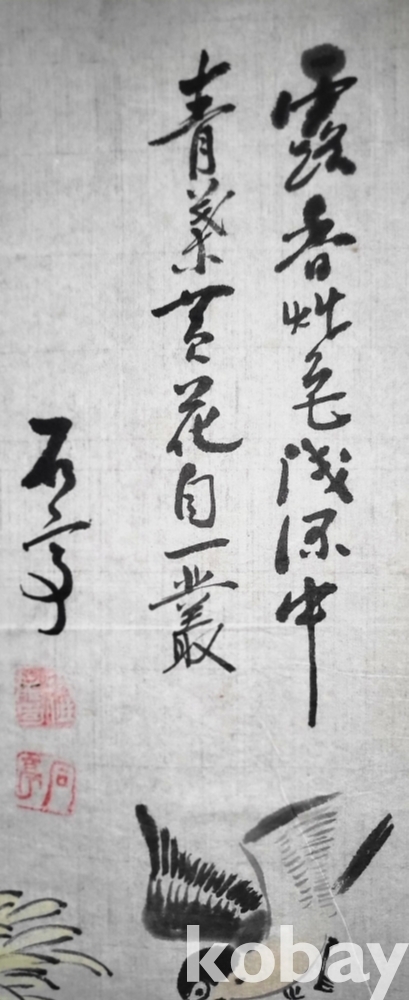 露香艸色浅深中
青葉黄花自一叢
石亭
kobay